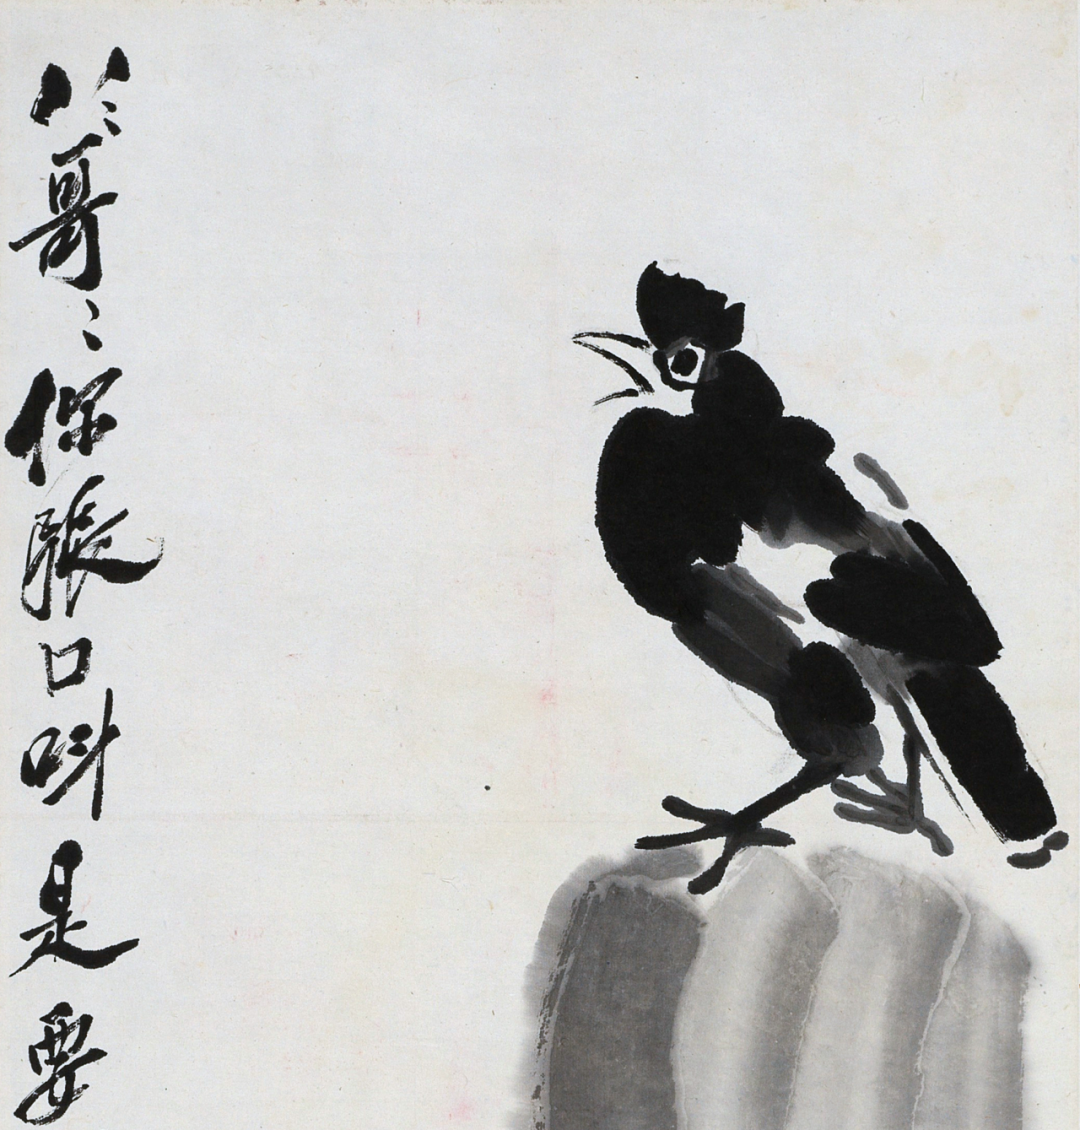 八〻哥〻你張口叫是要